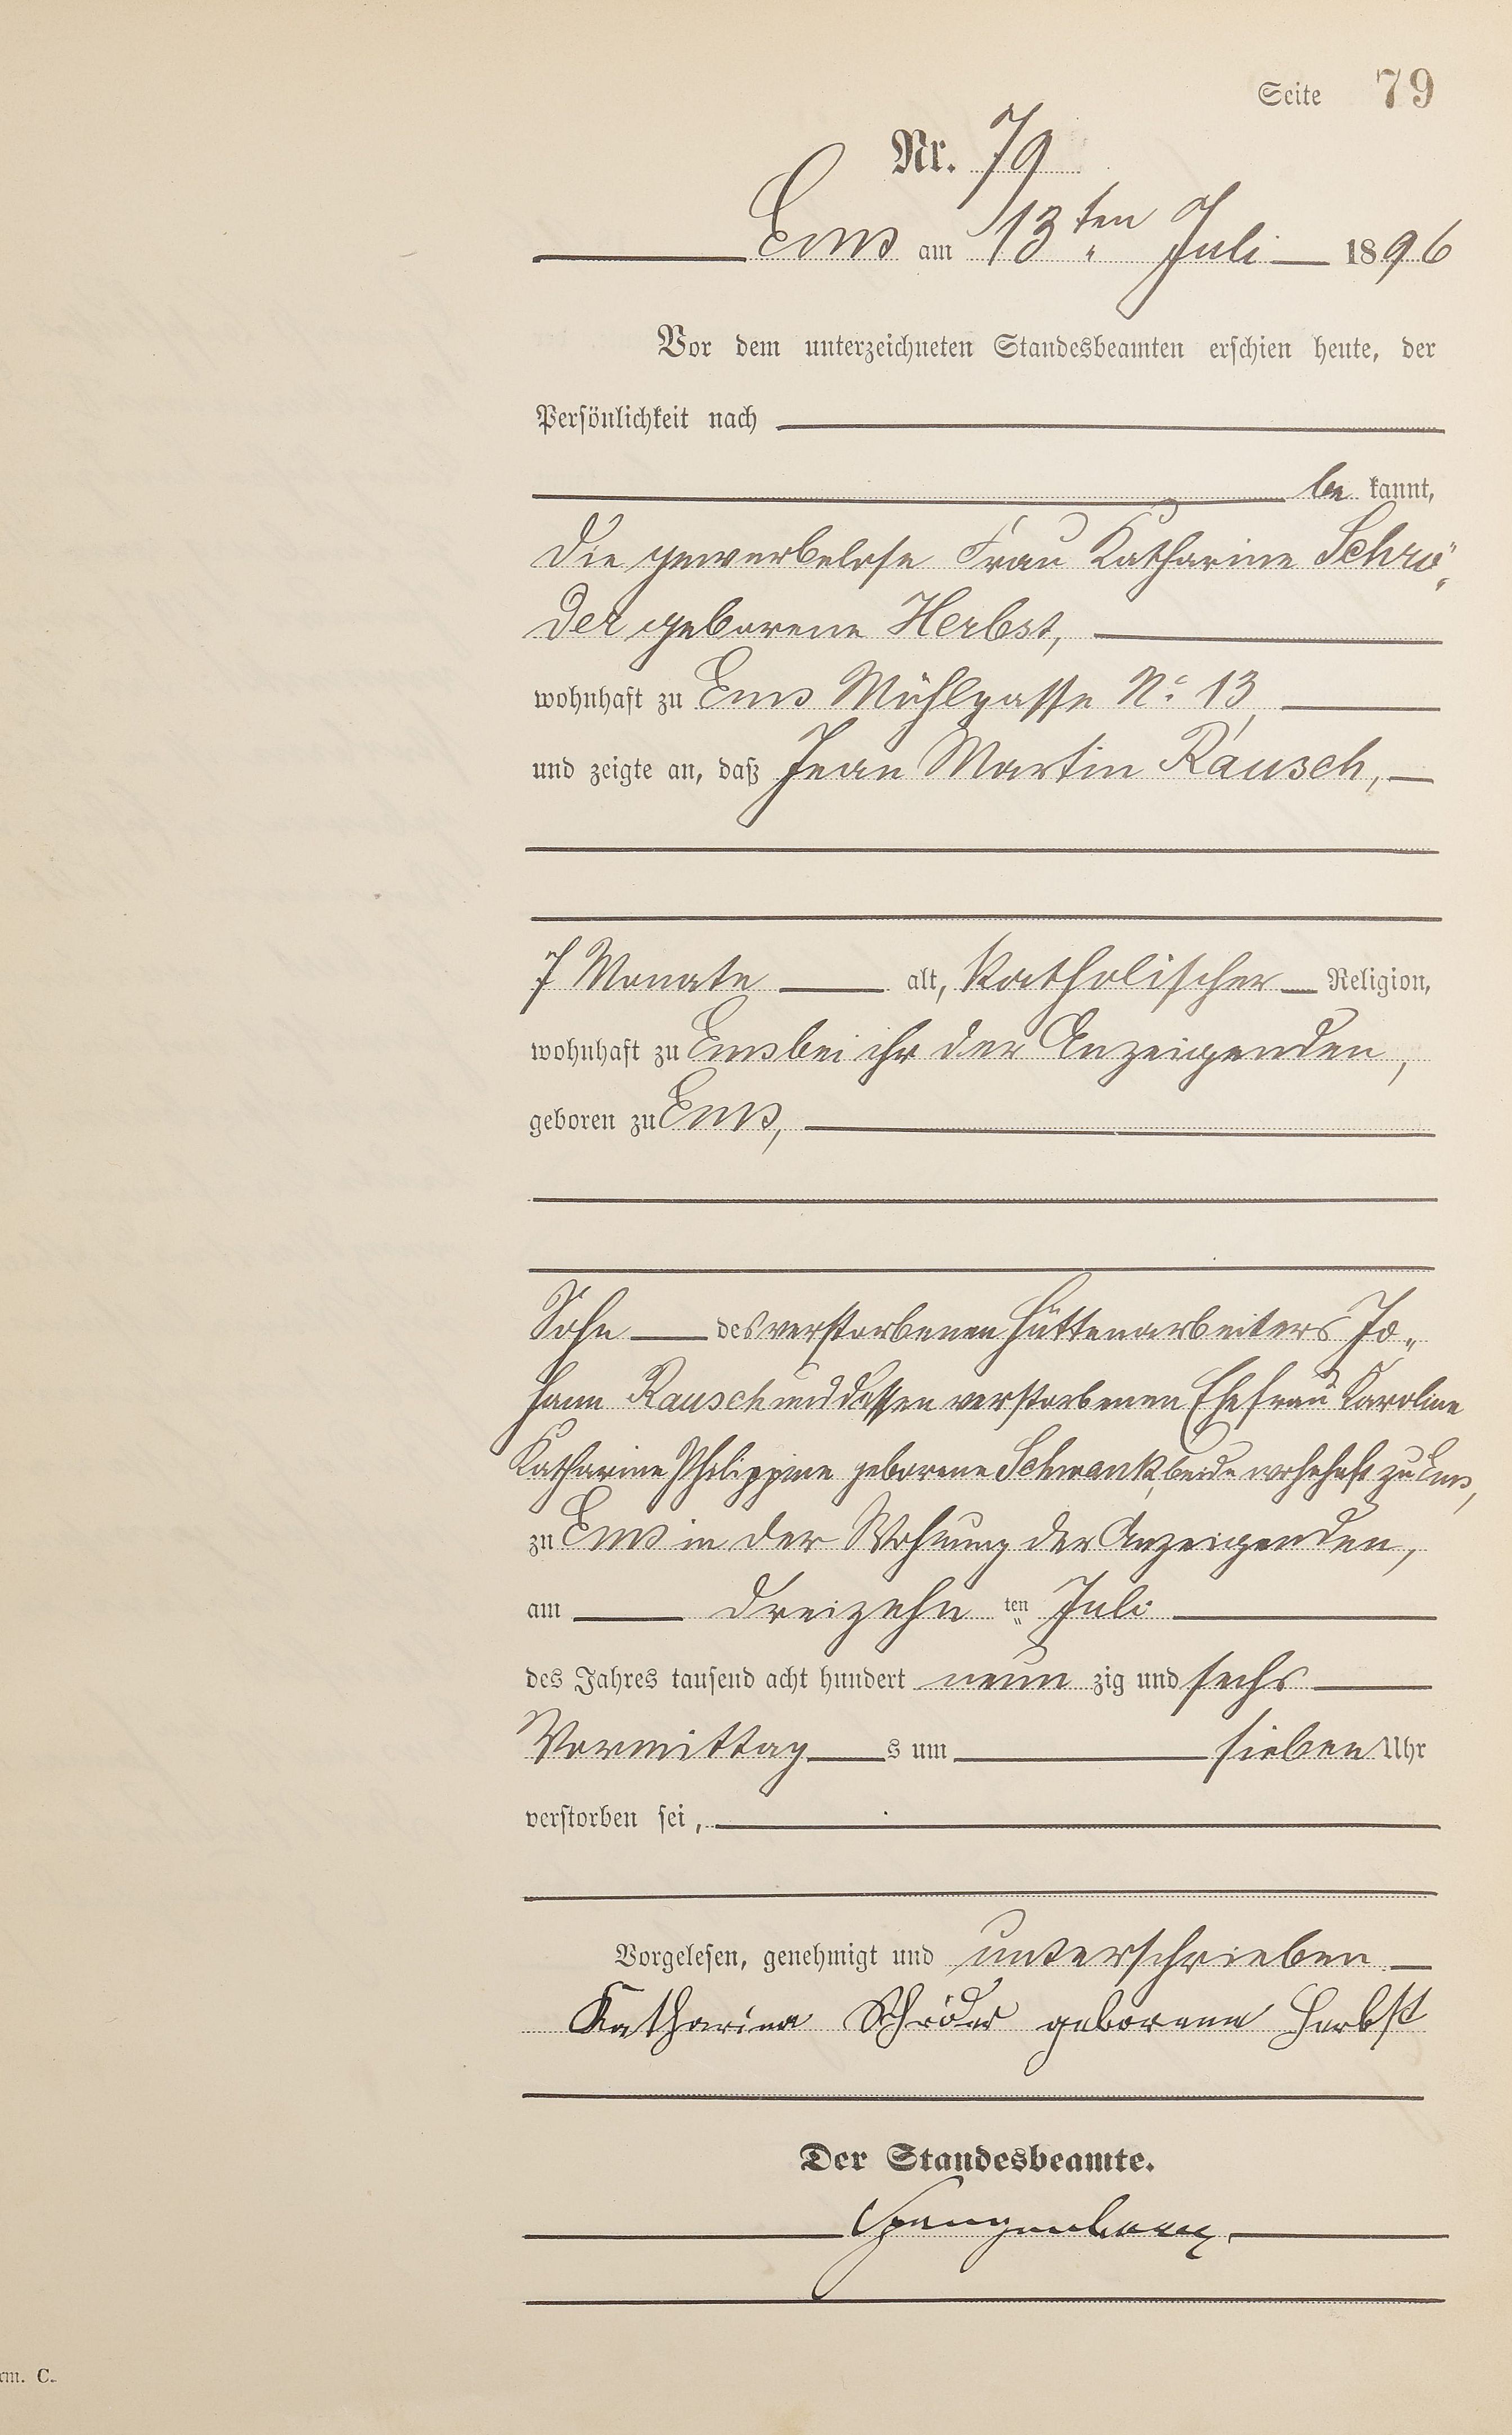 Seite 79
Nr. 79
Ems am 13ten Juli 1896
Vor dem unterzeichneten Standesbeamten erschien heute, der
Persönlichkeit nach
be kannt,
die gewerbelose Frau Katharine Schrö„
der geborene Herbst,
wohnhaft zu Ems Mühlgasse No 13
und zeigte an, daß Jean Martin Rausch,
7 Monate alt, katholischer Religion,
wohnhaft zu Ems bei ihr der Anzeigenden,
geboren zu Ems,
Sohn des verstorbenen Hüttenarbeiters Jo„
hann Rausch und dessen verstorbenen Ehefrau Karoline
Katharine Philippine geborene Schwank, beide wohnhaft zu Ems,
zu Ems in der Wohnung der Anzeigenden,
am dreizehn ten Juli
des Jahres tausend acht hundert neun zig und sechs
Vormittag s um sieben Uhr
verstorben sei,
Vorgelesen, genehmigt und unterschrieben
Katharina Schröder geborene Herbst
Der Standesbeamte.
Spangenberg
rm. C.